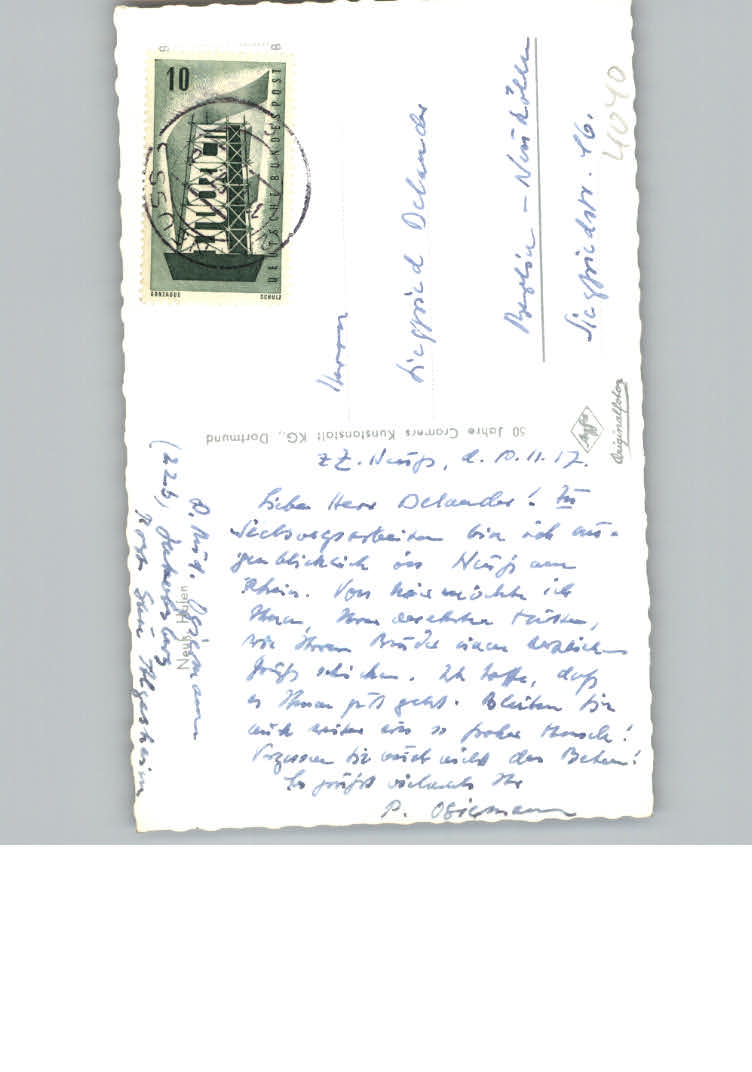 z. Z. Neuß, d. 10.11.57.
Lieber Herr Delander! Zu
bin ich au-
genblicklich in Neuß am
Rhein. Von hier möchte ich
Ihnen, Ihrer verehrten Mutter,
wie Ihrem Bruder einen herzlichen
Gruß schicken. Ich hoffe, daß
es Ihnen gut geht. Bleiben Sie
auch weiter ein so froher Mensch!
Vergessen Sie auch nicht das Beten!
Es grüßt vielmals Ihr
P.
P. Rud.
(22b)
Post
Neuß, Hafen
50 Jahre Cramers Kunstanstalt KG., Dortmund
Agfa
Originalfoton
Herrn
Siegfried Delander
Berlin - Neukölln
Siegfriedstr. 16.
4040
10
DEUTSCHE BUNDESPOST
EUROPA
GONZAGUE
SCHNELL
NEUSS